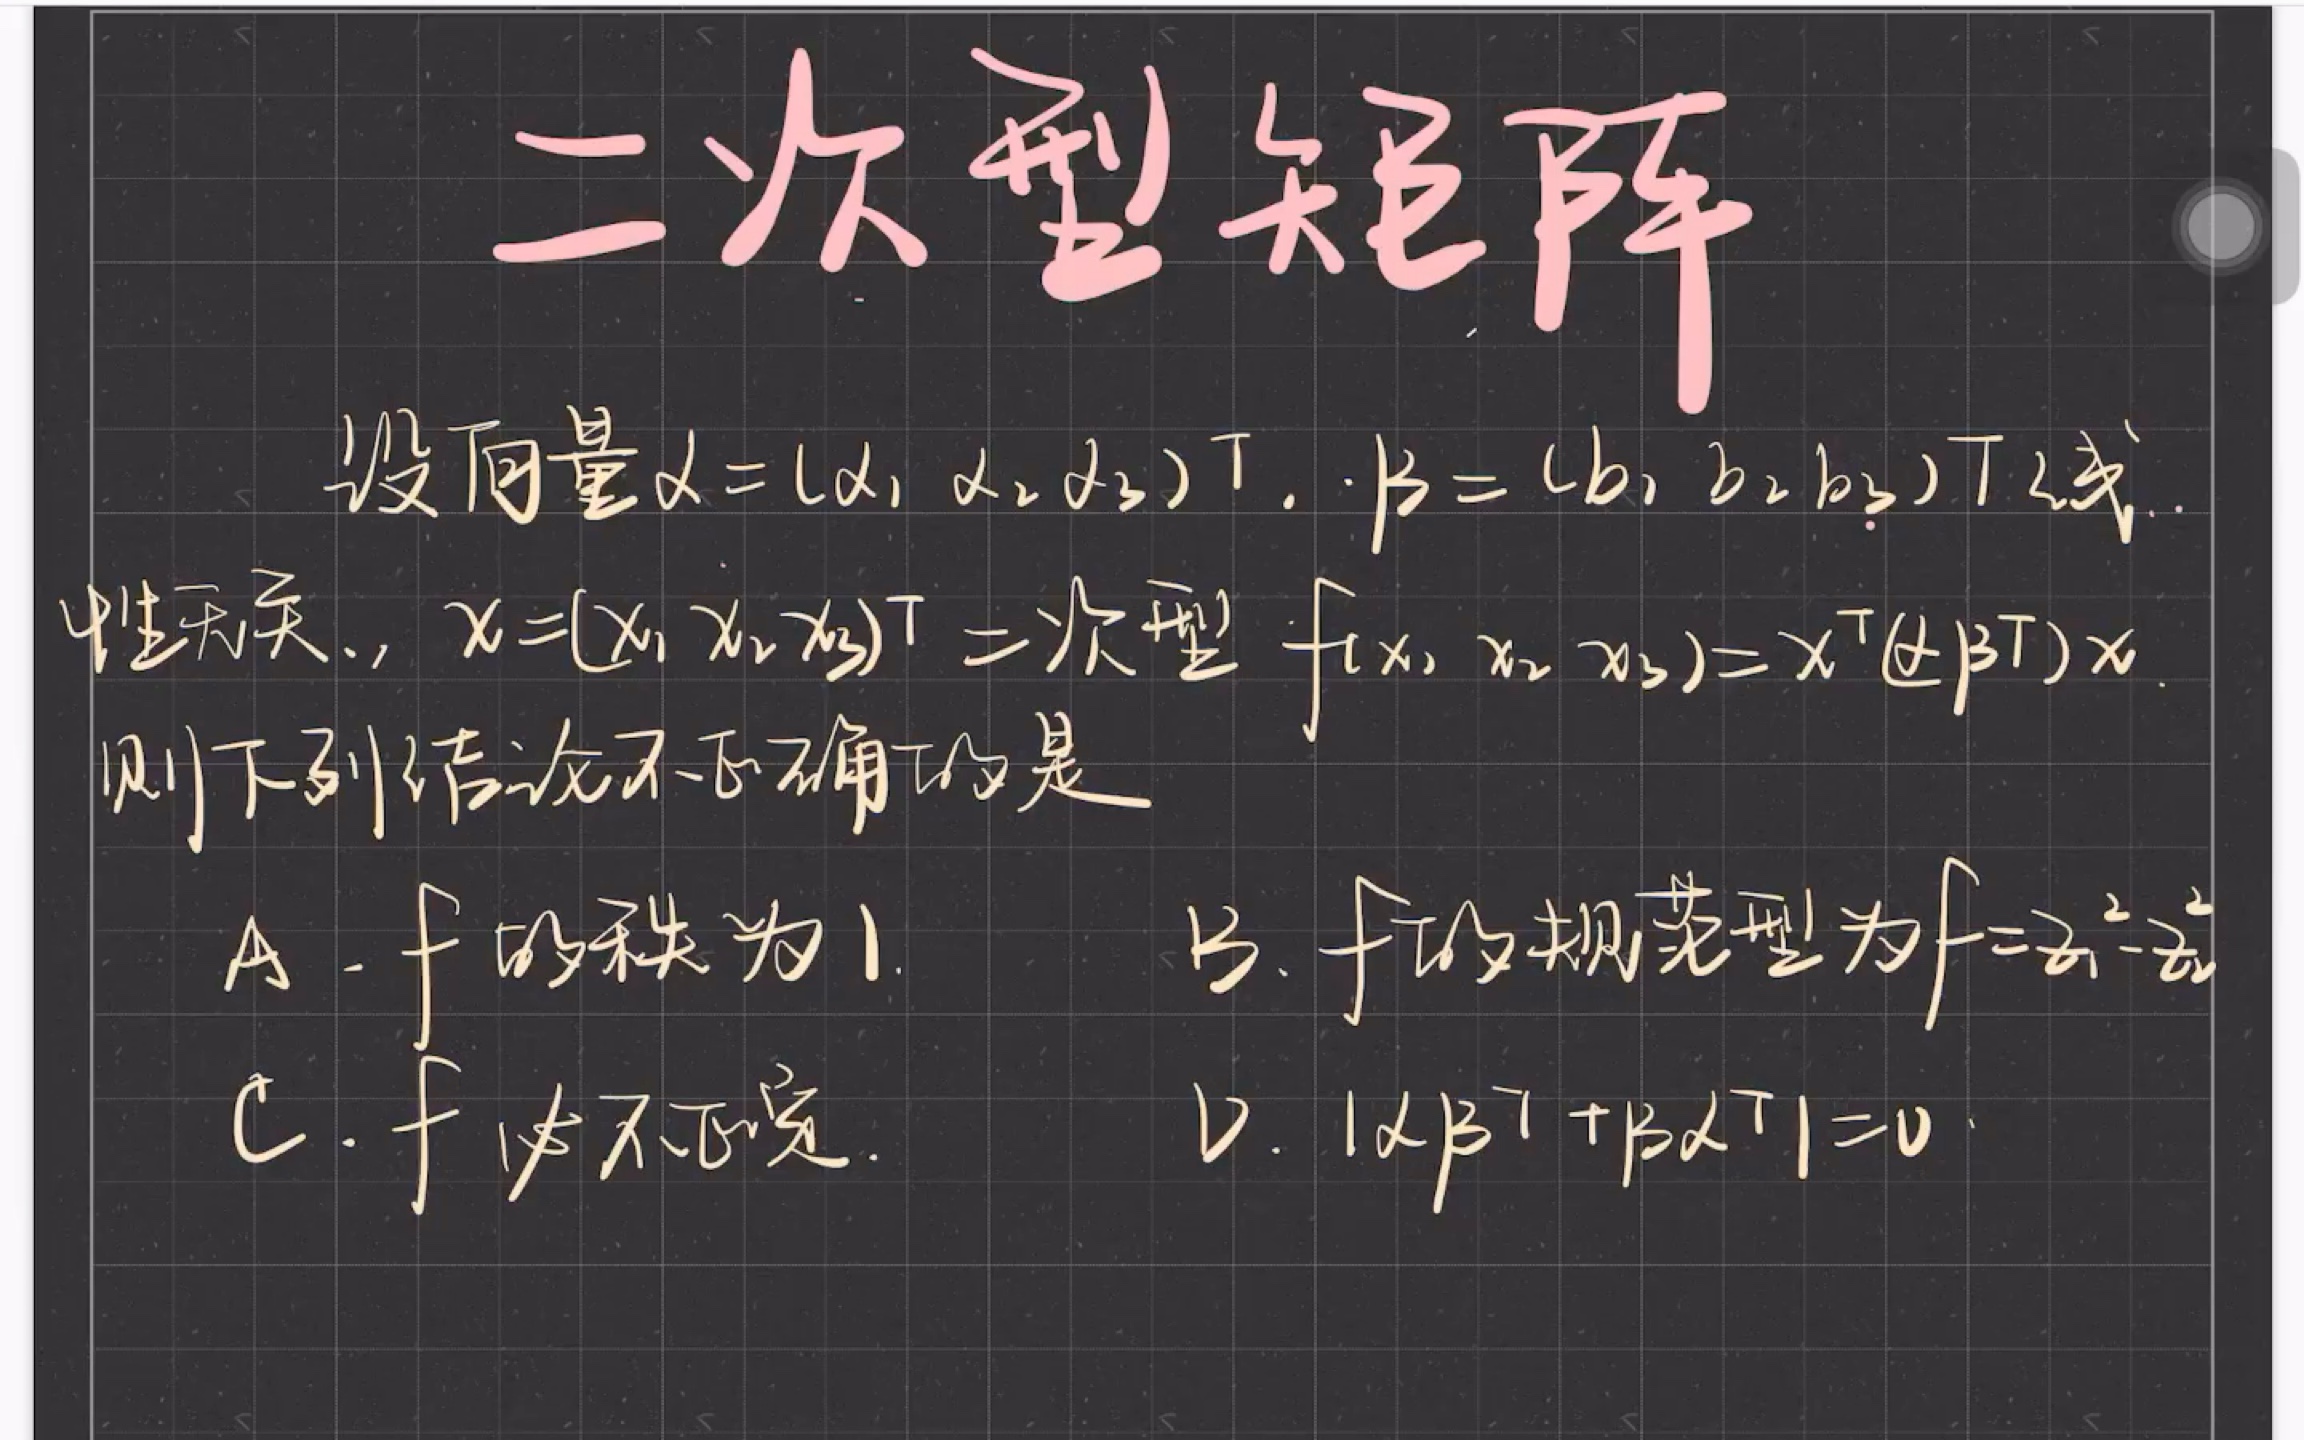 二次型矩阵
设向量α=(α₁ α₂ α₃)ᵀ. β=(b₁ b₂ b₃)ᵀ线
性无关., x=(x₁ x₂ x₃)ᵀ 二次型 f(x₁ x₂ x₃)=xᵀ(αβᵀ)x.
则下列结论不正确的是
A. f的秩为1. B. f的规范型为f=z₁²-z₂²
C. f必不正定. D. |αβᵀ+βαᵀ|=0.